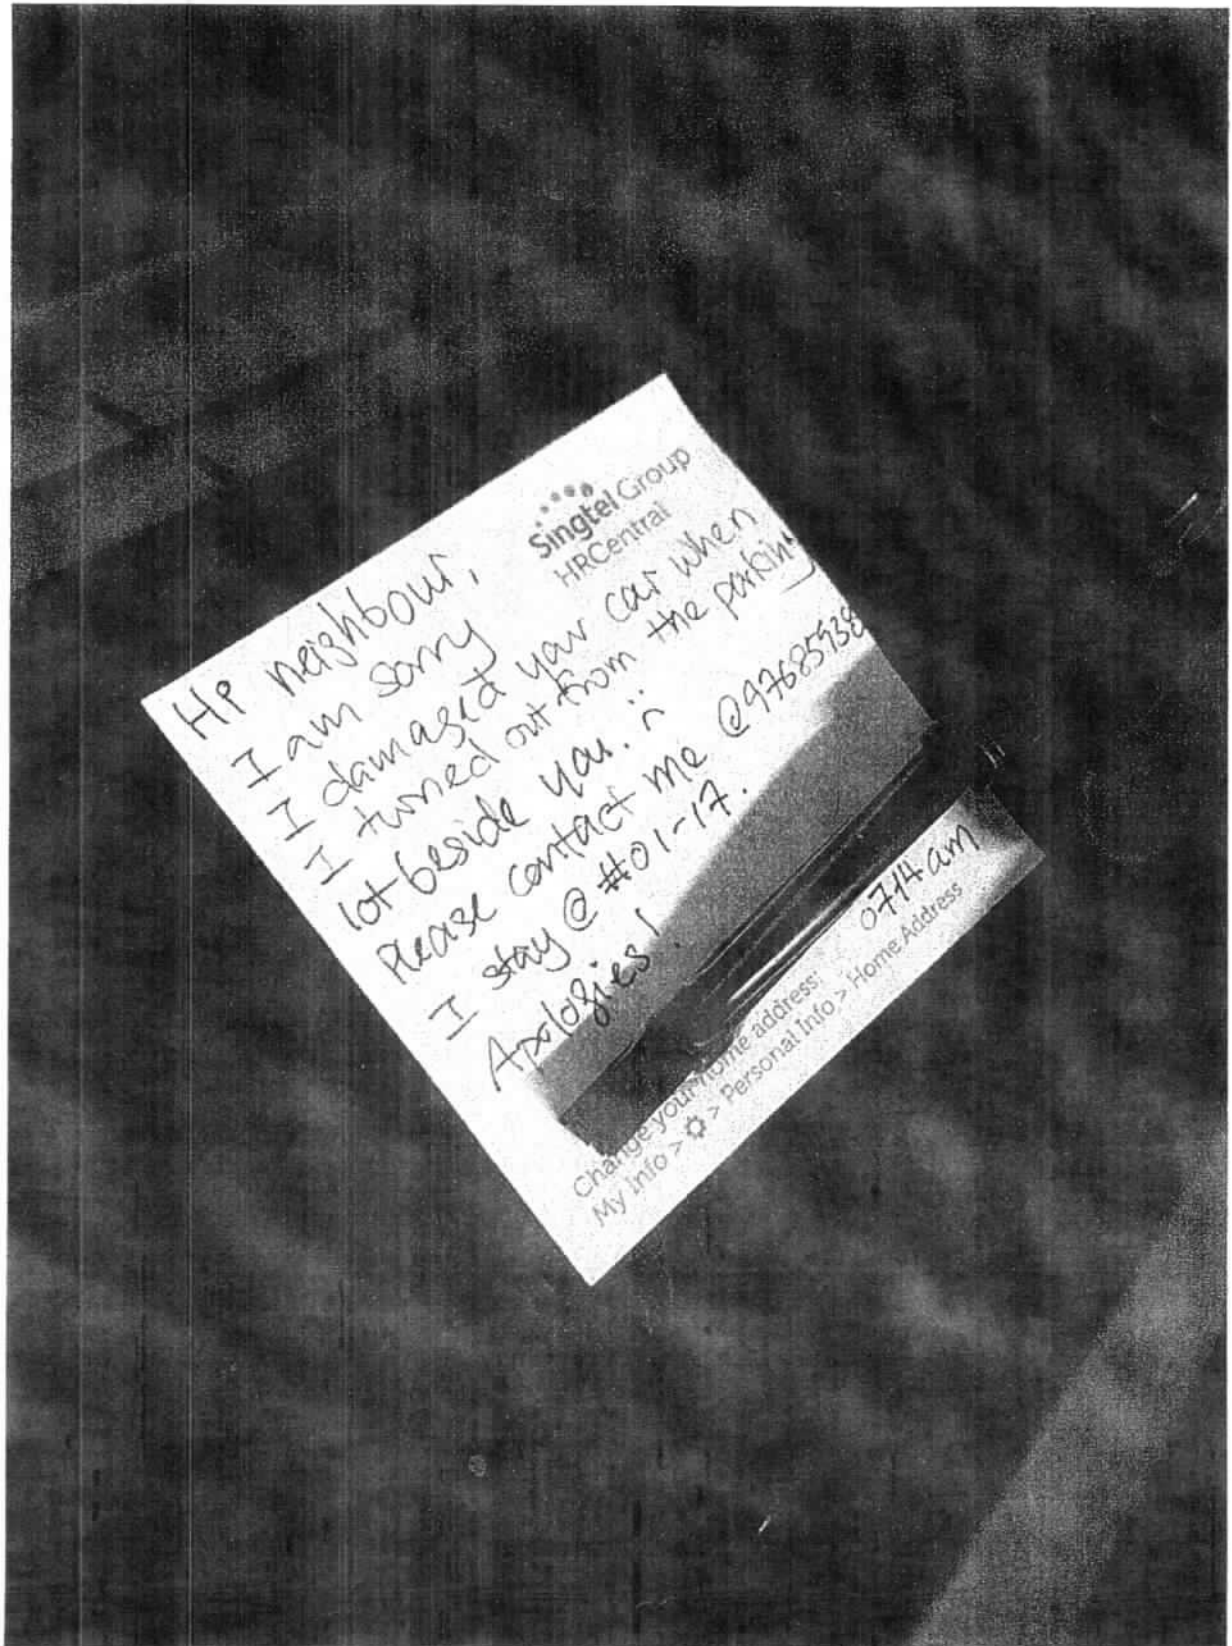 Singtel Group
HRCentral
Hi neighbour,
I am sorry
I damaged your car when
I turned out from the parking
lot beside you. ¨
Please contact me @97685938
I stay @ #01-17.
Apologies!
0714am
Change your home address:
My Info > ⚙ > Personal Info > Home Address